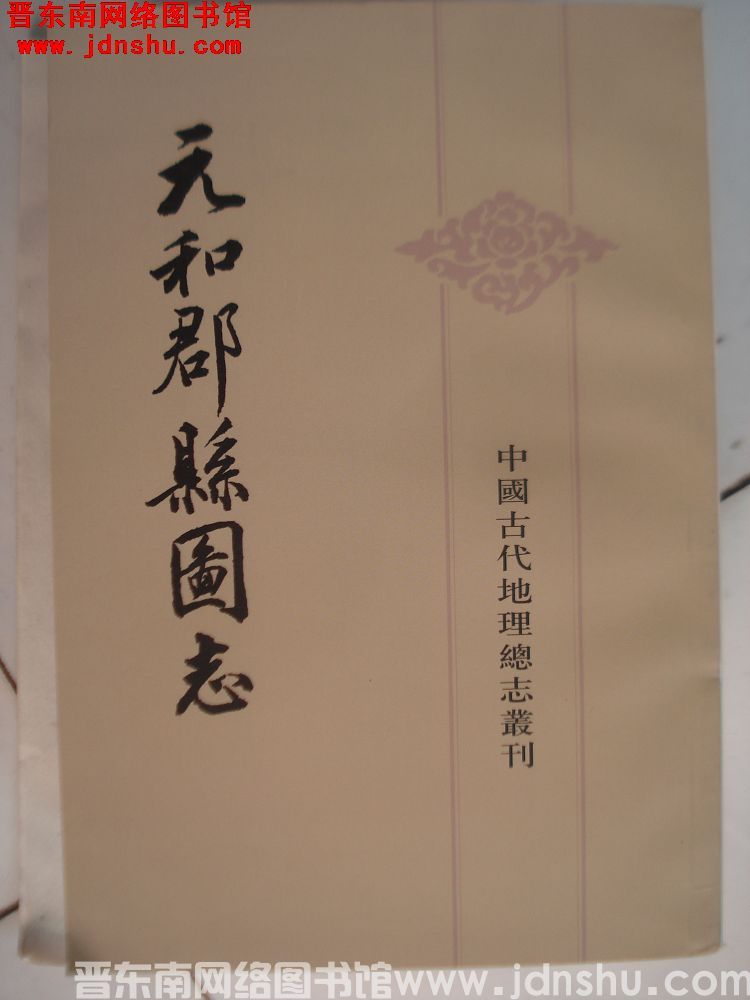 晋东南网络图书馆
www.jdnshu.com
元和郡縣圖志
中國古代地理總志叢刊
晋东南网络图书馆www.jdnshu.com